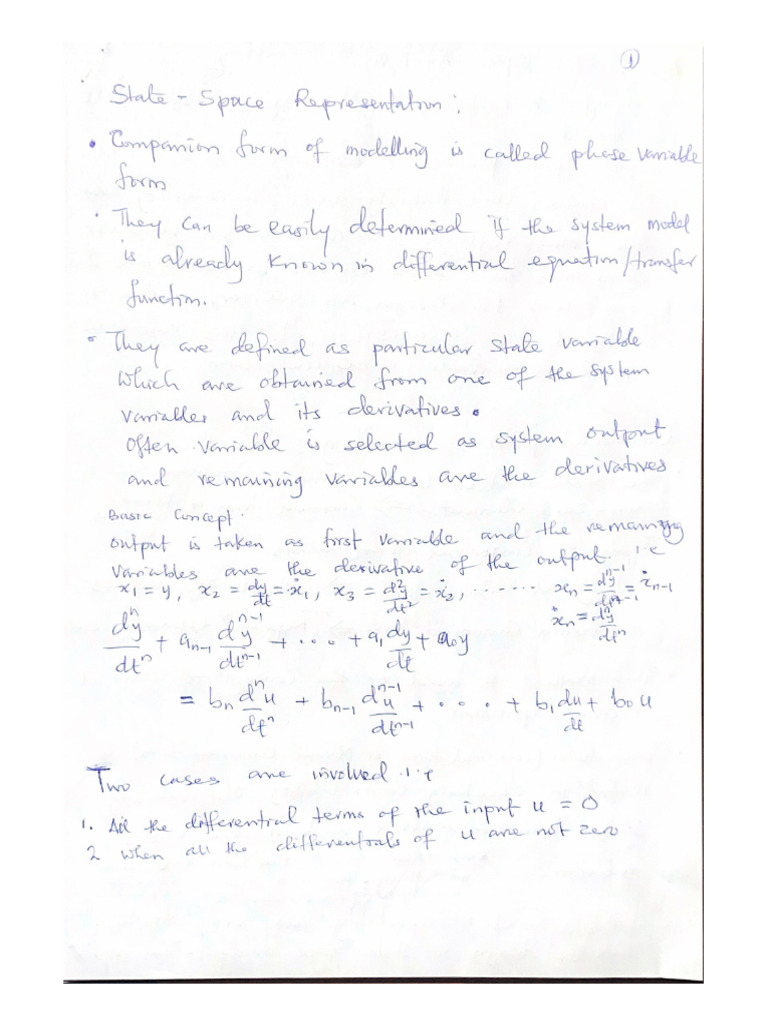 ①
State - Space Representation:
• Companion form of modelling is called phase variable
form
• They can be easily determined if the system model
is already known in differential equation/transfer
function.
• They are defined as particular state variable
which are obtained from one of the system
variables and its derivatives.
Often variable is selected as system output
and remaining variables are the derivatives
Basic Concept.
output is taken as first variable and the remaining
variables are the derivative of the output. i.e
x₁ = y, x₂ = dy/dt = ẋ₁, x₃ = d²y/dt² = ẋ₂, ...... xₙ = dⁿ⁻¹y/dtⁿ⁻¹ = ẋₙ₋₁
ẋₙ = dⁿy/dtⁿ
dⁿy/dtⁿ + aₙ₋₁ dⁿ⁻¹y/dtⁿ⁻¹ + ... + a₁ dy/dt + a₀y
= bₙ dⁿu/dtⁿ + bₙ₋₁ dⁿ⁻¹u/dtⁿ⁻¹ + ... + b₁ du/dt + b₀u
Two cases are involved i.e
1. All the differential terms of the input u = 0
2 when all the differentials of u are not zero